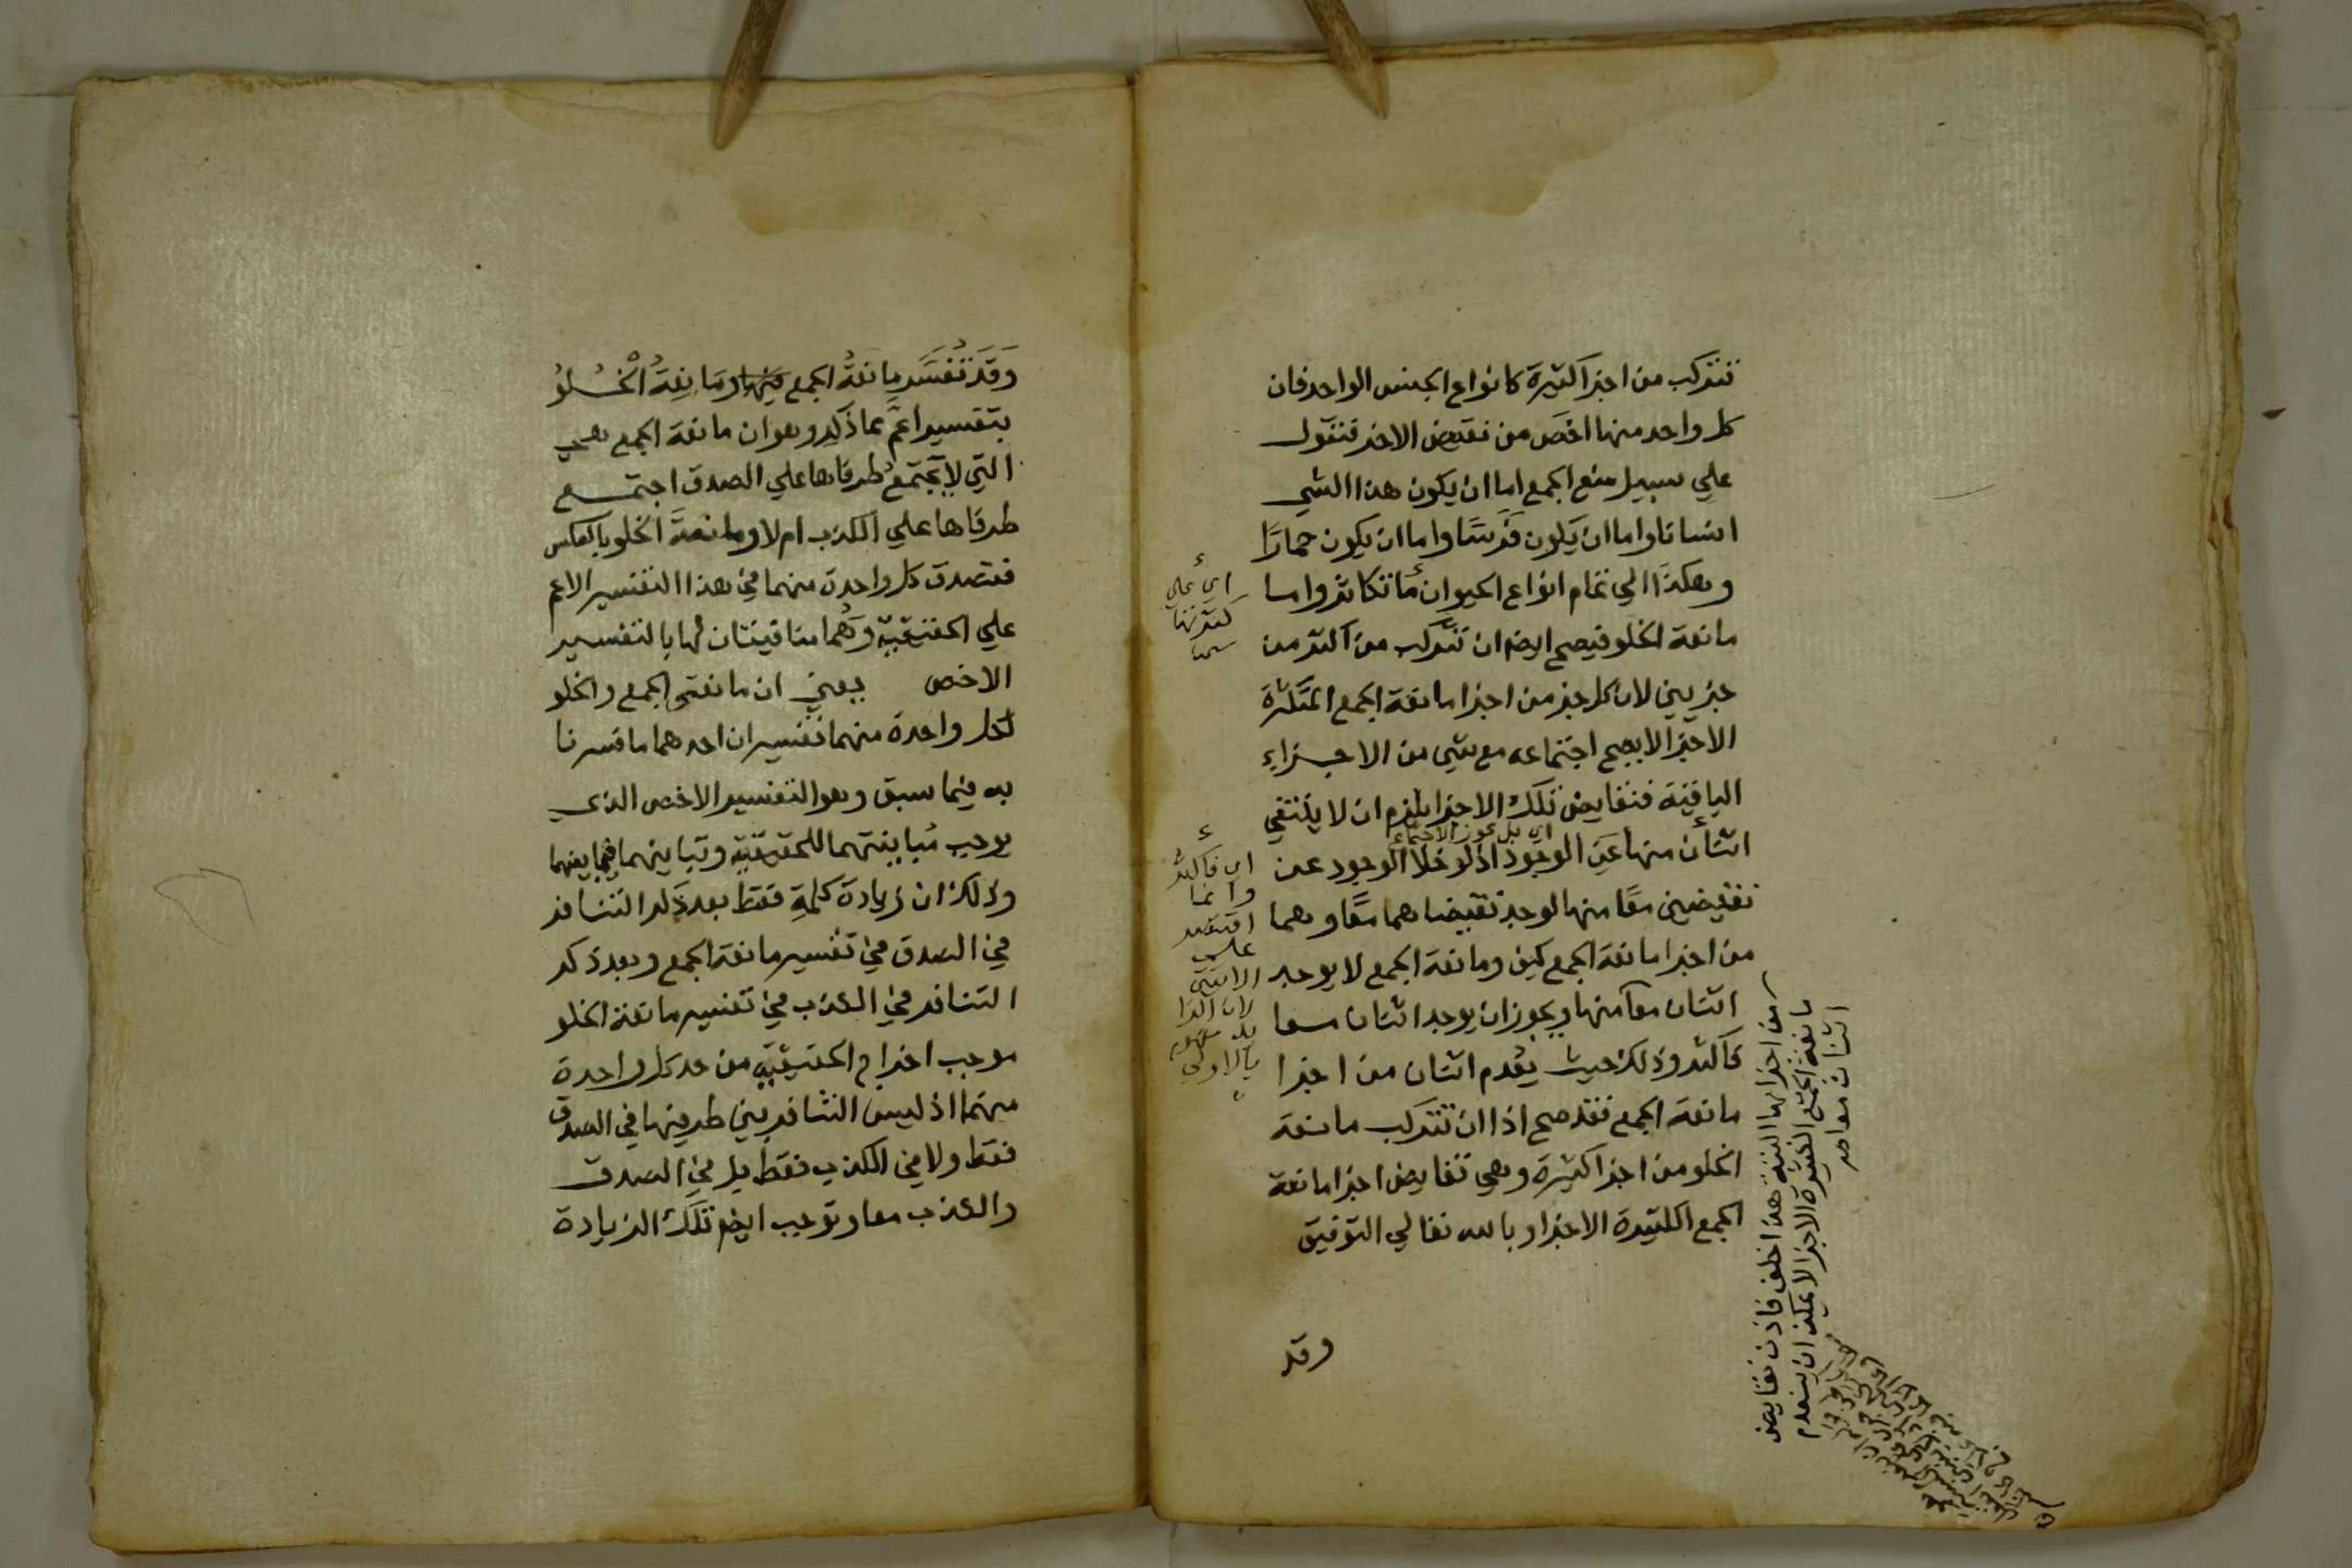 تتركب من اجزا كثيرة كانواع الجنس الواحد فان
كل واحد منها اخص من نقيض الاخر فنقول
علي سبيل منع الجمع اما ان يكون هذا الشي
انسانا واما ان يكون فَرَسًا واما ان يكون حمارًا
وهكذا الي تمام انواع الحيوان ما تكاثر واما
مانعة الخلو فيصح ايضا ان تتركب من اكثر من
جزيين لان كل جز من اجزا مانعة الجمع المتكثرة
الاجزا لا يصح اجتماعه مع شي من الاجزاء
الباقية فنقايض تلك الاجزا يلزم ان لا ينتفي
اثنان منها عن الوجود اذ لو خلا الوجود عن
نقيضين معًا منها لوجد نقيضاهما معًا وهما
من اجزا مانعة الجمع كيف ومانعة الجمع لا يوجد
اثنان معا منها ويجوز ان يوجد اثنان معا
فاكثر وذلك حيث يعدم اثنان من اجزا
مانعة الجمع فقد صح اذا ان تتركب مانعة
الخلو من اجزا كثيرة وهي نقايض اجزا مانعة
الجمع الكثيرة الاجزا وبالله تعالي التوفيق
وقد
اي علي
كثرتها
اي بل يجوز الاجتماع
اي فاكثر
وانما
اقتصر
علي
الاثنين
لان الزا
يد مفهوم
بالاولي
من اجزايها البتة هذا خلف فاذن نقايض
مانعة الجمع الكثيرة الاجزا لا يمكن ان ينعدم
اثنان معا من
وَقَدْ تُفَسَّر مانعةُ الجمع ومَانِعَةُ الْخُلُوُ
بتفسير اعمَّ مما ذكر وهو ان مانعة الجمع هي
التي لا يَجْتَمعُ طرفاها علي الصدق اجتمع
طرفاها علي الكذب ام لا ومانعة الخلو بالعكس
فتصدق كل واحدة منهما في هذا التفسير الاعم
علي الحقيقية وهُما منافيتان لها بالتفسير
الاخص يعني ان مانعتي الجمع والخلو
لكل واحدة منهما تفسيران احدهما ما فسرنا
به فيما سبق وهو التفسير الاخص الذي
يوجب مُباينتهما للحقيقية وتباينهما فيما بينهما
وذلك ان زيادة كلمة فقط بعد ذكر التنافر
في الصدق في تفسير مانعة الجمع وبعد ذكر
التنافر في الكذب في تفسير مانعة الخلو
موجب اخراج الحقيقية من حد كل واحدة
منهما اذ ليس التنافر بين طرفيها في الصدق
فقط ولا في الكذب فقط بل في الصدق
والكذب معا وتوجب ايضا تلك الزيادة